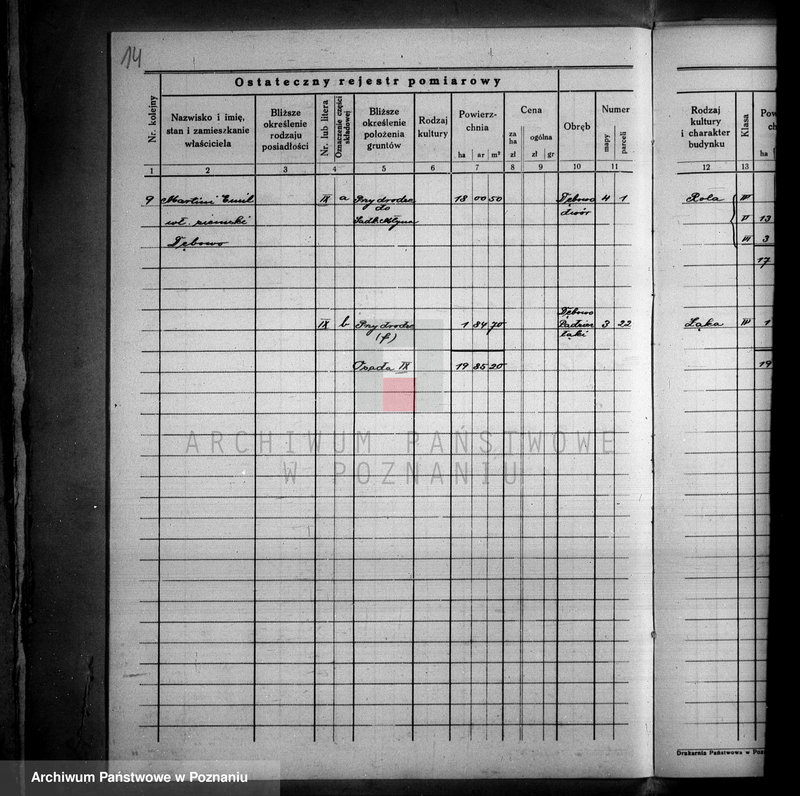 14
Ostateczny rejestr pomiarowy
Nr. kolejny
Nazwisko i imię, stan i zamieszkanie właściciela
Bliższe określenie rodzaju posiadłości
Nr. lub litera
Oznaczenie części składowej
Bliższe określenie położenia gruntów
Rodzaj kultury
Powierzchnia
ha ar m²
Cena
za ha zł
ogólna zł gr
Obręb
Numer
mapy parceli
Rodzaj kultury i charakter budynku
Klasa
ha
1 2 3 4 5 6 7 8 9 10 11 12 13
9 Martini Emil IX a Przy drodze 18 00 50 Dębowo 4 1 Rola IV
do dwór
wł. ziemski Sadk. Młyna V 13
Dębowo VI 3
17
Dębowo
IX b Przy drodze 1 84 70 3 22 Łąka IV 1
(f) łąki
Osada IX 19 85 20 19
ARCHIWUM PAŃSTWOWE
W POZNANIU
Drukarnia Państwowa w Poz
Archiwum Państwowe w Poznaniu